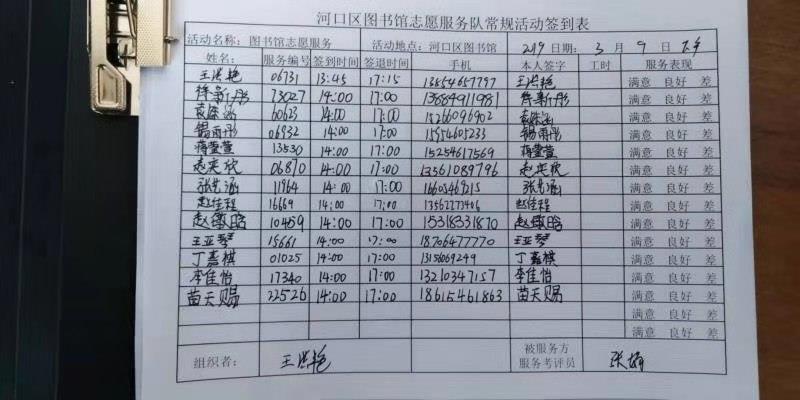 河口区图书馆志愿服务队常规活动签到表
活动名称：图书馆志愿服务 活动地点：河口区图书馆 2019 日期：3 月 9 日
姓名： 服务编号 签到时间 签退时间 手机 本人签字 工时 服务表现
王洪艳 06731 13:45 17:15 13854657797 王洪艳 满意 良好 差
徐新彤 73027 14:00 17:00 13884911981 徐新彤 满意 良好 差
袁 60623 14:00 17:00 15266096902 袁 满意 良好 差
锡雨彤 06932 14:00 17:00 15554605233 锡雨彤 满意 良好 差
蒋萱萱 13530 14:00 17:00 15254617569 蒋萱萱 满意 良好 差
赵奕欣 06870 14:00 17:00 13561089796 赵奕欣 满意 良好 差
张 涵 11964 14:00 17:00 张 涵 满意 良好 差
赵佳程 16669 14:00 17:00 13562273406 赵佳程 满意 良好 差
赵皓 10459 14:00 17:00 15318331870 赵皓 满意 良好 差
王亚琴 15661 14:00 17:00 18706477770 王亚琴 满意 良好 差
丁嘉棋 01025 14:00 17:00 13156069249 丁嘉棋 满意 良好 差
李佳怡 17340 14:00 17:00 13210347157 李佳怡 满意 良好 差
苗天赐 22526 14:00 17:00 18615461863 苗天赐 满意 良好 差
满意 良好 差
满意 良好 差
组织者： 王洪艳 被服务方
服务考评员 张